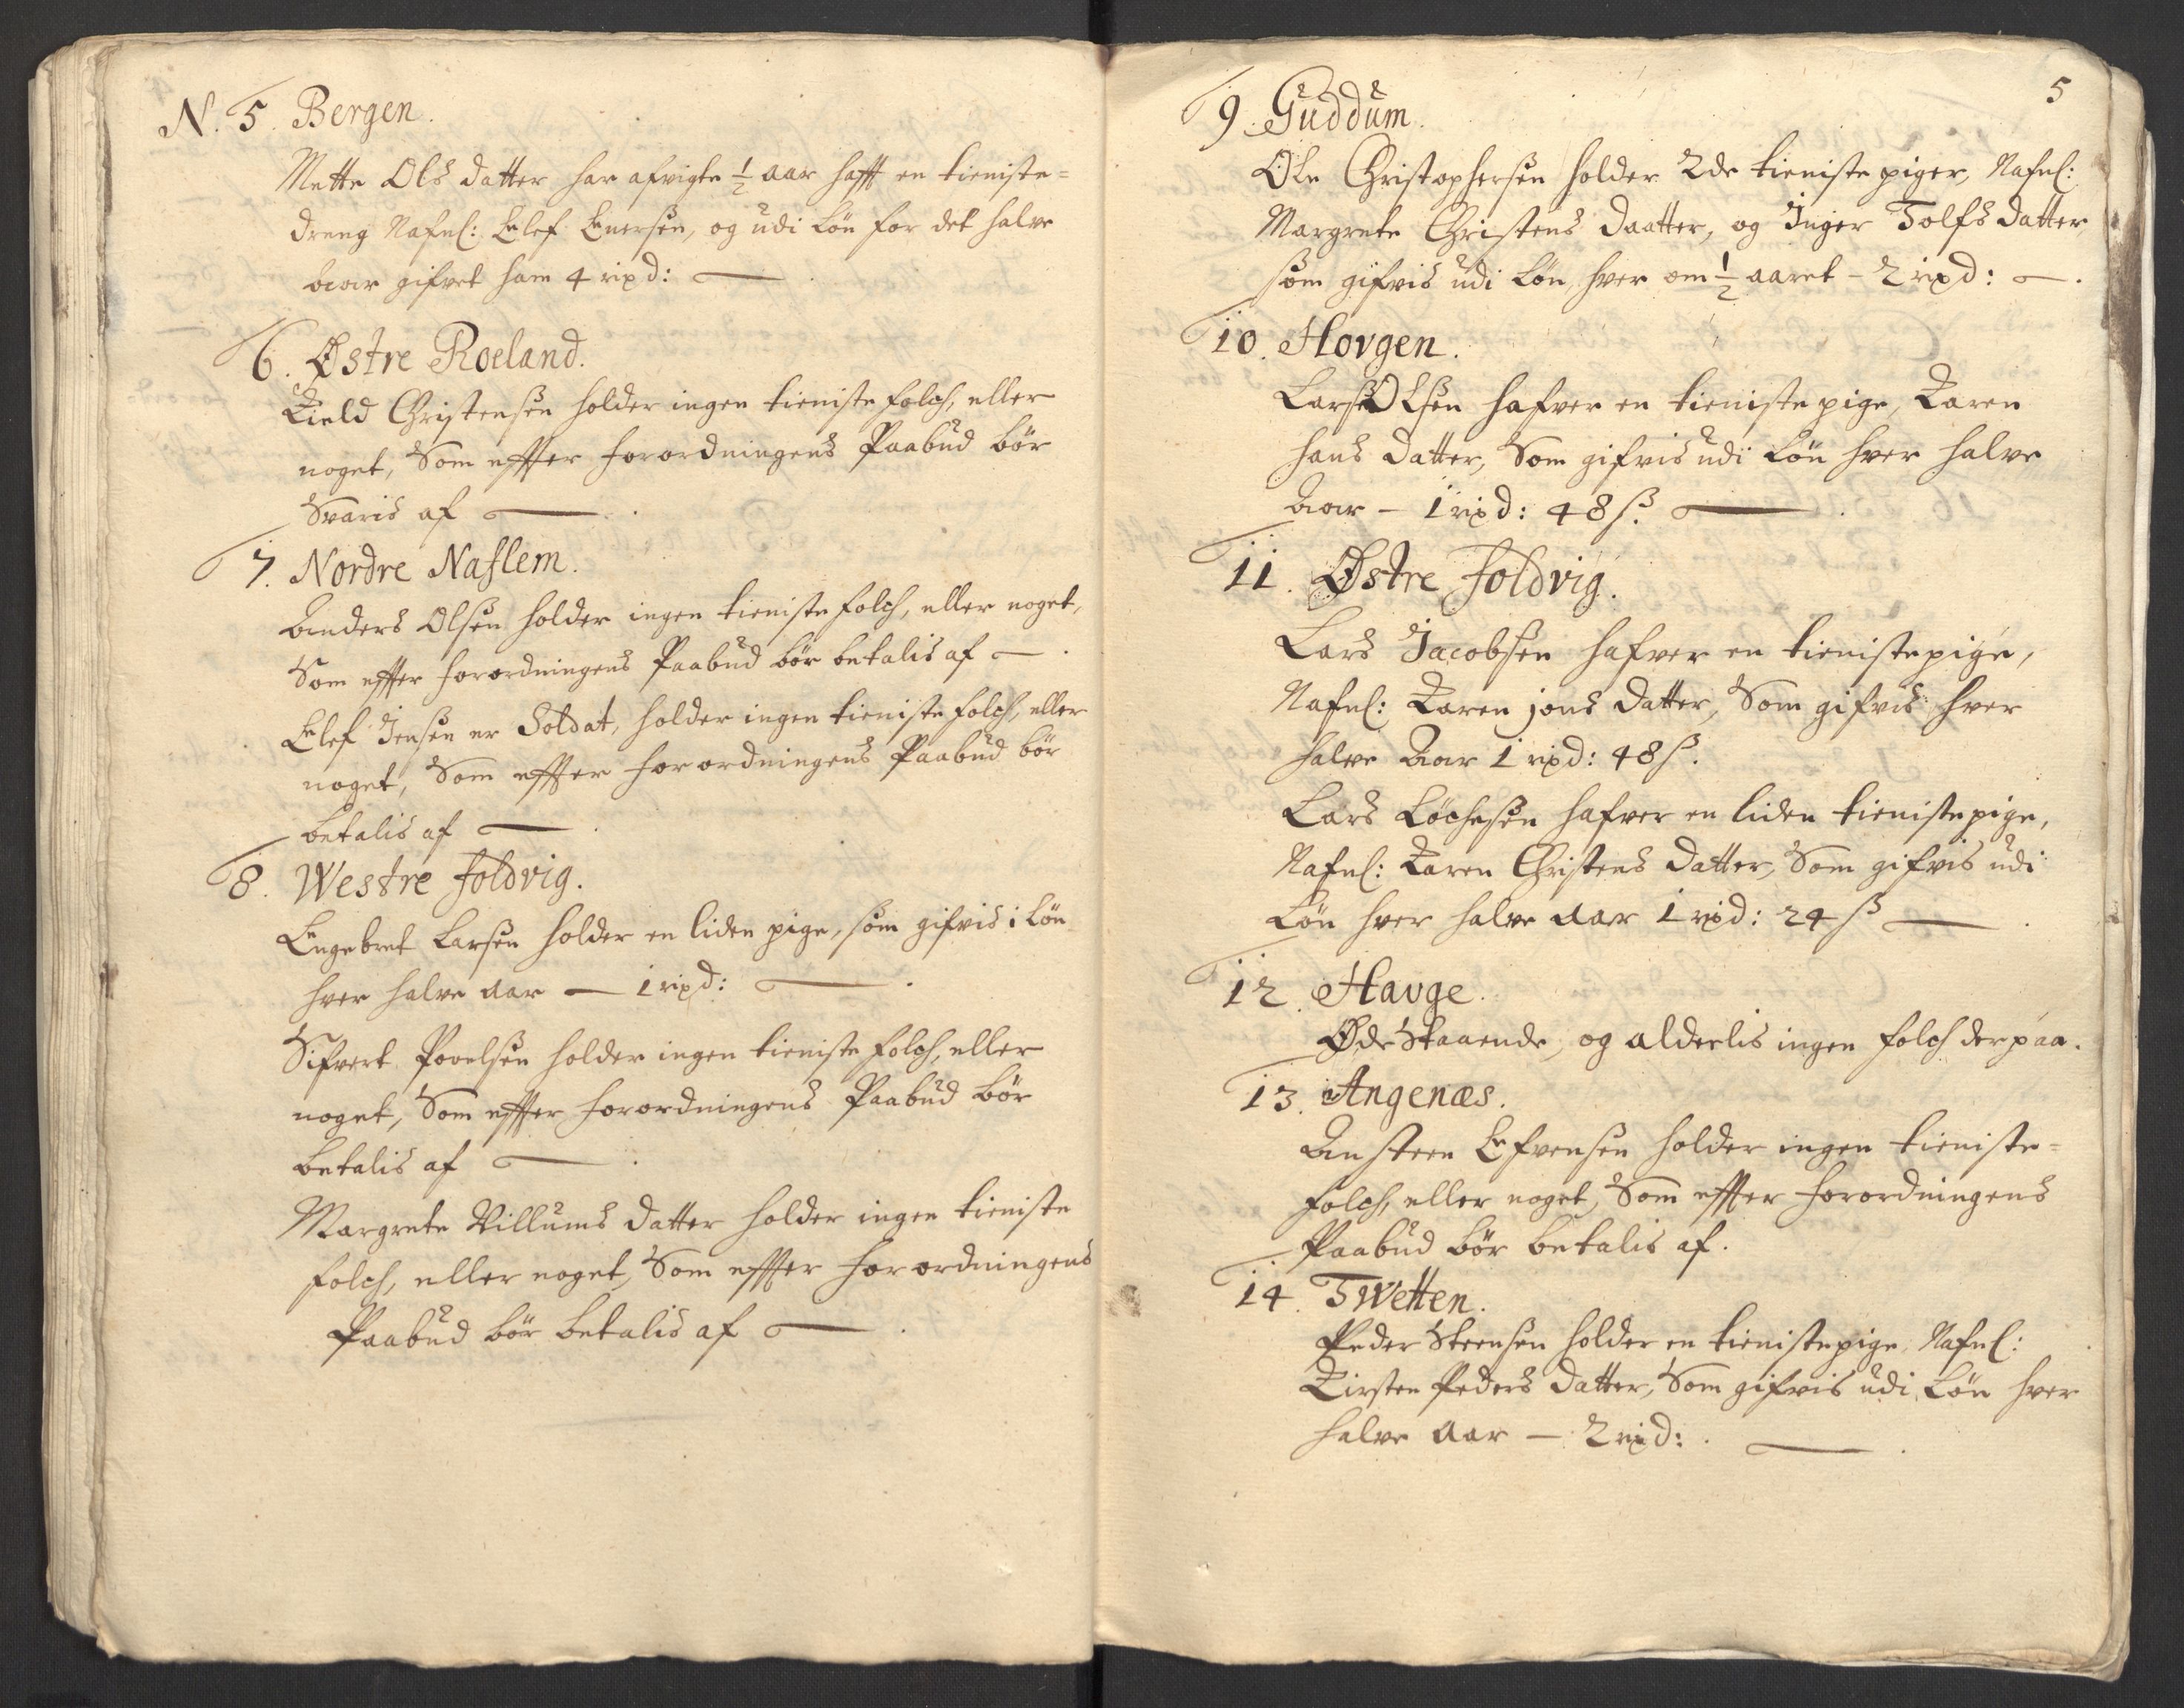 N. 5. Bergen.
Mette Ols datter har afvigte ½ aar hafft en tieniste=
dreng Nafnl: Elef Enersen, og udi Løn for det halve
Aar gifvet ham 4 rixd:
6. Østre Roeland.
Kield Christensen holder ingen tieniste folch, eller
noget, Som effter forordningens Paabud bør
Svaris af
7. Nordre Naslem.
Anders Olsen holder ingen tieniste folch, eller noget,
Som effter forordningens Paabud bør betalis af
Elef Jensen er Soldat, holder ingen tieniste folch, eller
noget, Som effter forordningens Paabud bør
betalis af
8. Westre Foldvig.
Engebret Larsen holder en liden pige, som gifvis i Løn
hver halve aar — 1 rixd:
Sifvert Povelsen holder ingen tieniste folch, eller
noget, Som effter forordningens Paabud bør
betalis af
Margrete Villums datter holder ingen tieniste
folch, eller noget, Som effter forordningens
Paabud bør betalis af
5
9. Guddum.
Ole Christophersen holder 2de tieniste piger, Nafnl:
Margrete Christens daatter, og Inger Tolfs datter,
som gifvis udi Løn, hver om ½ aaret - 2 rixd:
10. Hovgen.
Lars Olsen hafver en tieniste pige, Karen
Hans datter, Som gifvis udi Løn hver halve
Aar - 1 rixd: 48 ß.
11. Østre Foldvig.
Lars Jacobsen hafver en tienistepige,
Nafnl: Karen jons datter, Som gifvis hver
halve Aar 1 rixd: 48 ß.
Lars Løchesen hafver en liden tienistepige,
Nafnl: Karen Christens datter, Som gifvis udi
Løn hver halve aar 1 rixd: 24 ß
12. Havge.
Øde Staaende, og alderlis ingen folch derpaa.
13. Angenæs.
Ansteen Efvensen holder ingen tieniste=
folch, eller noget, Som effter forordningens
Paabud bør betalis af.
14. Twetten.
Peder Steensen holder en tienistepige, Nafnl:
Kirsten Peders datter, Som gifvis udi Løn hver
halve aar — 2 rixd: